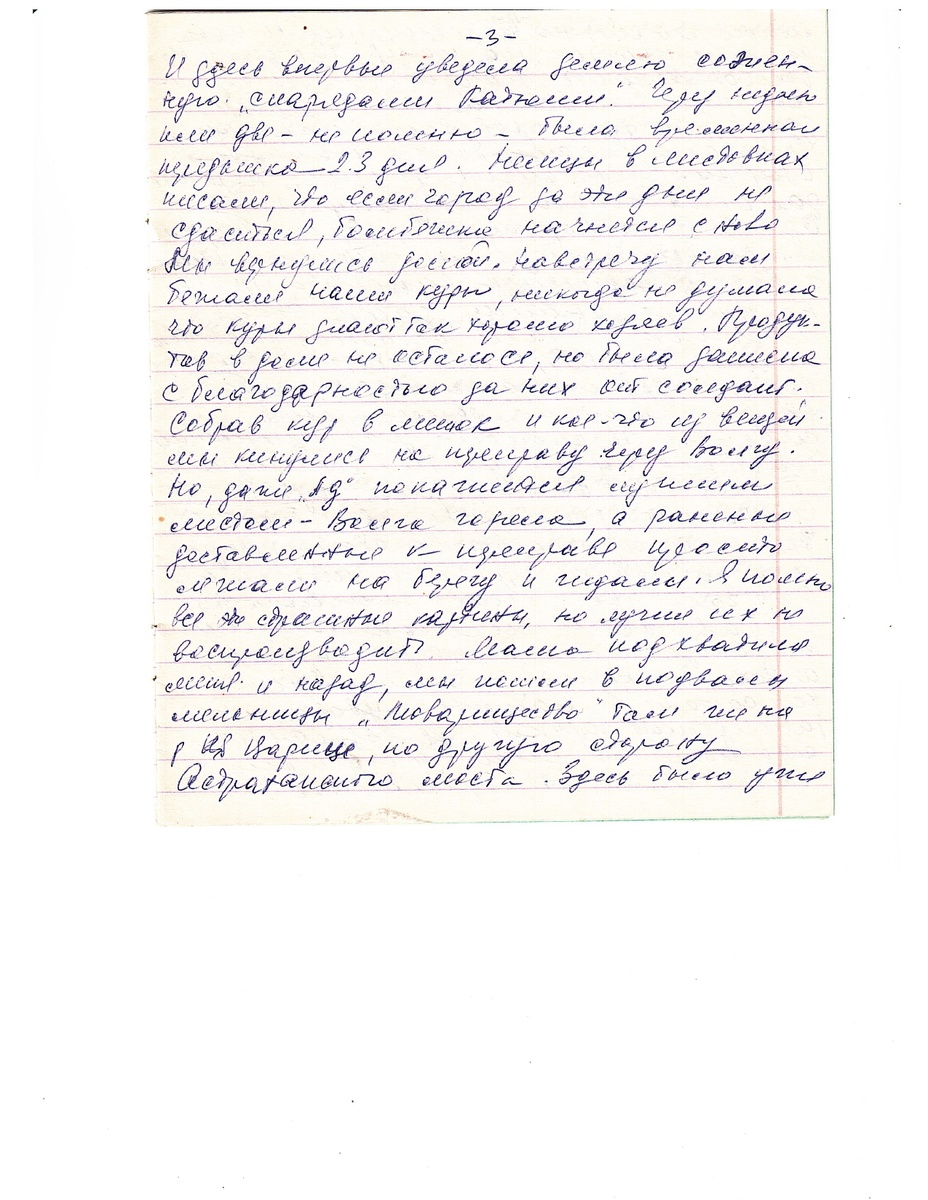 -3-
И здесь впервые увидела землю сожжен-
ную "снарядами Катюши". Через неделю
или две - не помню - была временная
передышка - 2.3 дня. Немцы в листовках
писали, что если город за эти дни не
сдаситься, бомбежка начнется с ново
Мы вернулись домой. Навстречу нам
бежали наши куры, никогда не думала
что куры знают так хорошо хозяев. Продук-
тов в доме не осталося, но была записка
с благодарностью за них от солдат.
Собрав кур в мешок и кое-что из вещей
мы кинулись на переправу через Волгу.
Но, даже "Ад" покажится лучшем
местом - Волга горела, а раненые
доставленные к переправе просто
лежали на берегу и ждали. Я помню
все эти страшные картины, но лучше их не
воспроизводить. Мама подхватила
меня и назад, мы пошли в подвалы
мельницы "Товарищество" там же на
р Царице, по другую сторону
Астраханского моста. Здесь было уже